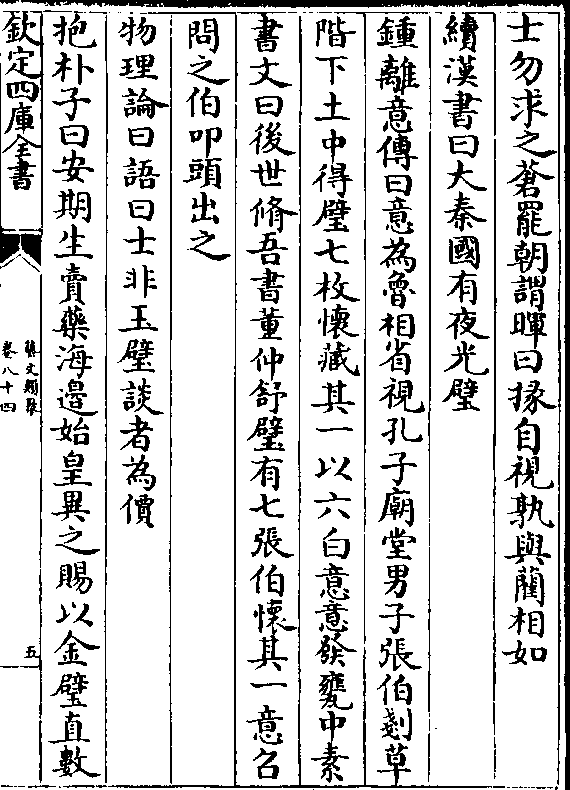 士勿求之蒼罷朝謂暉曰掾自視孰與藺相如
續漢書曰大秦國有夜光璧
鍾離意傳曰意為魯相省視孔子廟堂男子張伯剗草
階下土中得璧七枚懷藏其一以六白意意發甕中素
書文曰後世脩吾書董仲舒璧有七張伯懷其一意召
問之伯叩頭出之
物理論曰語曰士非玉璧談者為價
抱朴子曰安期生賣藥海邉始皇異之賜以金璧直數
欽定四庫全書
藝文類聚
卷八十四
五